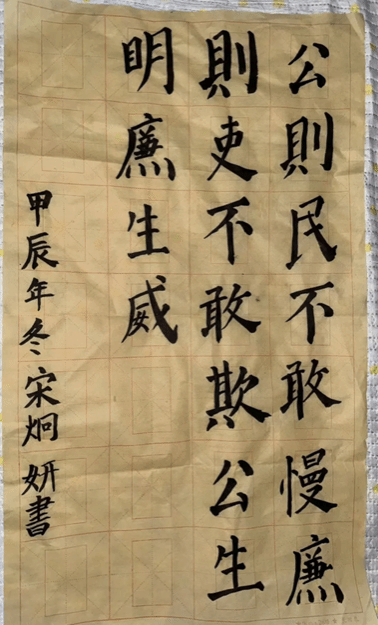 公則民不敢慢廉
則吏不敢欺公生
明廉生威
甲辰年冬宋炯妍書